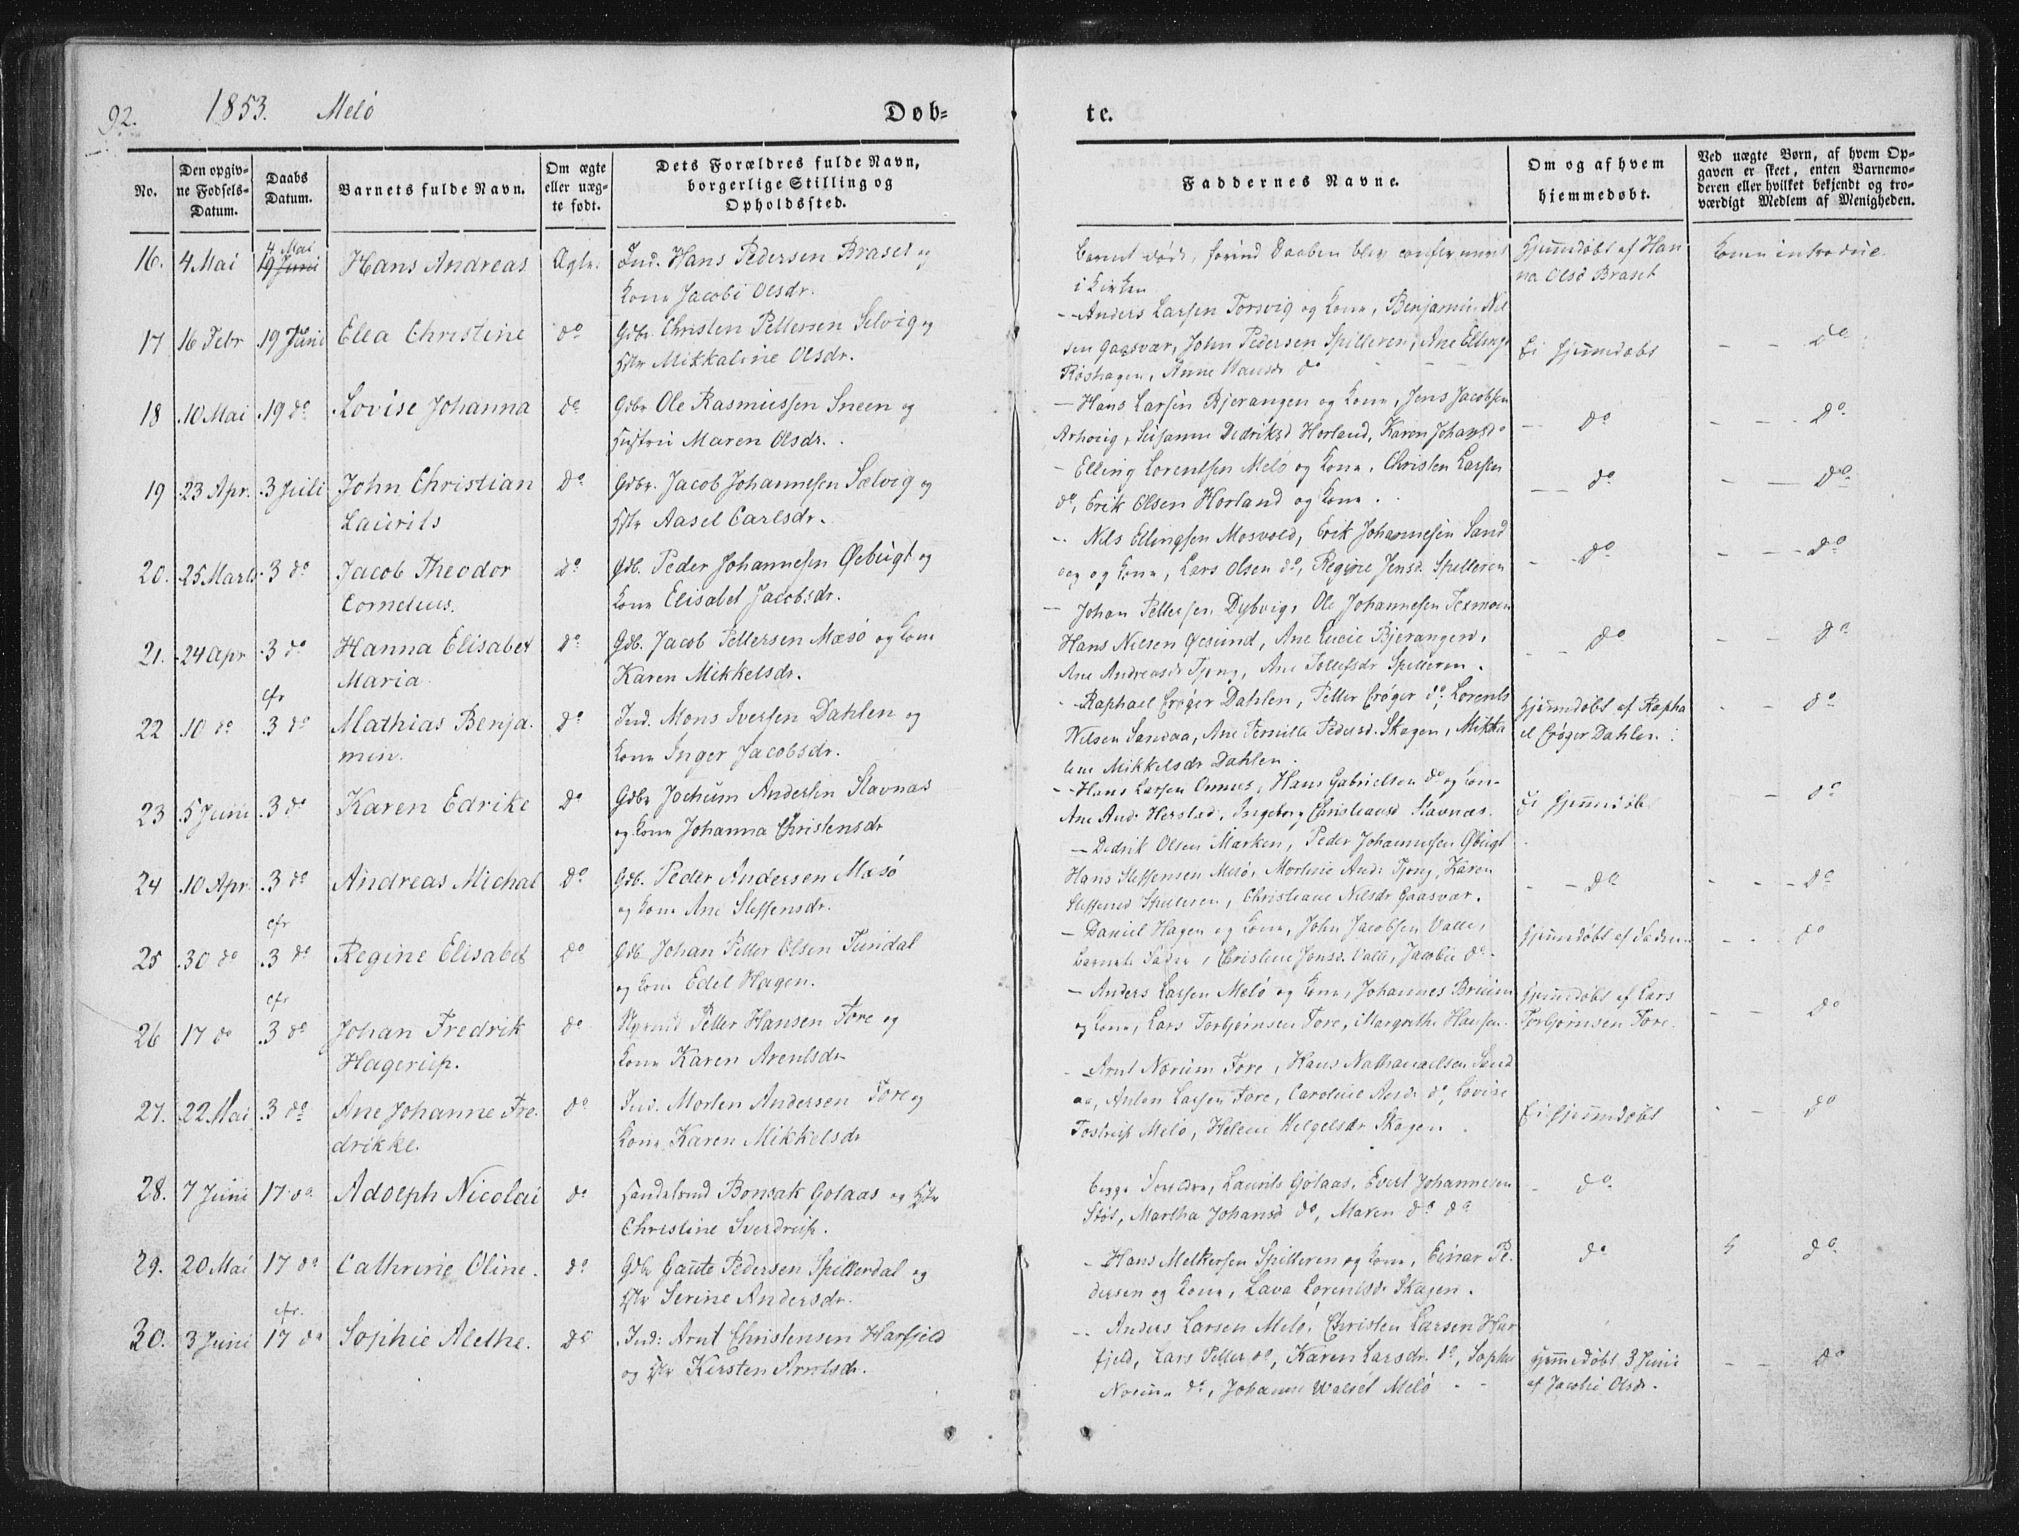 92. 1853. Melö
Døb-
te.
No.
Den opgiv-
ne Fødsels-
Datum.
Daabs
Datum.
Barnets fulde Navn.
Om ægte
eller uæg-
te født.
Dets Forældres fulde Navn,
borgerlige Stilling og
Opholdssted.
Faddernes Navne.
Om og af hvem
hjemmedøbt.
Ved uægte Børn, af hvem Op-
gaven er skeet, enten Barnemo-
deren eller hvilket bekjendt og tro-
værdigt Medlem af Menigheden.
16. 4 Mai 4 Mai 19 Juni Hans Andreas Ægte. Ind. Hans Pedersen Braset og
Kone Jacobi Olsdr.
Barnet døde, forind Daaben blev confirmeret
i Kirken
Hjemmedøbt af Han-
na Olsd Braset
Konen introduc.
17 16 Febr 19 Juni Elea Christine do Gdbr. Christen Pettersen Selvig og
Hstr Mikkaline Olsdr.
- Anders Larsen Torsvig og Kone, Benjamin Niel
sen Gaasvær, John Pedersen Spilderen, Ane Ellings
Röshagen, Anne Hansdr do
Ei hjemmedøbt
- - do
18 10 Mai 19 do Lovise Johanna do Gdbr Ole Rasmussen Sneen og
Hustru Maren Olsdr.
- Hans Larsen Bjerangen og Kone, Jens Jacobsen
Arhoug, Susanne Dedriksd Horland, Karen Johansd do
- do
- - do
19 23 Apr. 3 Juli John Christian
Laurits
do Gdbr. Jacob Johannesen Sælvig og
Hstr Aasel Carlsdr.
- Elling Lorentsen Melö og Kone, Christen Larsen
do, Erik Olsen Horland og Kone.
- do
- - do
20. 25 Marts 3 do Jacob Theodor
Cornelius.
do Gdb. Peder Johannesen Øebugt og
Kone Elisabet Jacobsdr.
- Nils Ellingsen Mosvold, Erik Johannesen Sand
og Kone, Lars Olsen do, Regine Jensd. Spilderen
- do
- - do
21. 24 Apr 3 do Hanna Elisabet
Maria
do Gdb. Jacob Pettersen Mæsö og Kone
Karen Mikkelsdr.
- Johan Pettersen Dybvig, Ole Johannesen Texmoen
Hans Nilsen Øesund, Ane Lucie Bjerangen,
Ane Andreasdr Tjong, Ane Tollefsdr Spilderen.
- do
- - do
22 10 do cfr 3 do Mathias Benja-
min.
do Ind. Mons Iversen Dahlen og
Kone Inger Jacobsdr.
- Raphael Crøger Dahlen, Petter Crøger do, Lorents
Nilsen Sandaa, Ane Pernille Pedersd. Skagen, Mikka
line Mikkelsdr Dahlen.
Hjemmedøbt af Rapha
el Crøger Dahlen.
- - do
23 5 Juni 3 do Karen Edrike do Gdbr Jochum Andersen Stavnæs
og Kone Johanna Christensdr
- Hans Larsen Ornæs, Hans Gabrielsen do og Kone
Ane Andr Herstad, Ingeborg Christiansd Stavnæs.
Ei hjemmedøbt
- - do
24 10 Apr. 3 do Andreas Michal do Gdb. Peder Andersen Mæsö
og Kone Ane Steffensdr.
- Dedrik Olsen Marken, Peder Johannesen Øbugt
Hans Steffensen Melö, Mortine Andr Tjong, Karen
Steffensd Spilderen, Christiane Nilsdr Gaasvær.
- - do
- - - do
25 30 do cfr 3 do Regine Elisabet do Gdb Johan Petter Olsen Tundal
og Kone Edel Hagen.
- Daniel Hagen og Kone, John Jacobsen Valle,
Barnets Fader, Christine Jonsd. Valle, Jacobie do
Hjemmedøbt af Faderen
- - do
26 17 do cfr 3 do Johan Fredrik
Hagerup.
do Petter Hansen Fore og
Kone Karen Arentsdr
- Anders Larsen Melö og Kone, Johannes Bruun
og Kone, Lars Torbjørnsen Fore, Margrethe Hansen.
Hjemmedøbt af Lars
Torbjørnsen Fore.
- - do
27. 22 Mai 3 do Ane Johanne Fre-
drikke.
do Ind. Morten Andersen Fore og
Kone Karen Mikkelsdr
- Arnt Norum Fore, Hans Nathanaelsen Sand
aa, Anton Larsen Fore, Caroline Andr do, Lovise
Tostrup Melö, Helene Helgesdr Skagen.
Ei hjemmedøbt
- - do
28. 7 Juni 17 do. Adolph Nicolai do Handelsmd Bonsak Gotaas og Hstr
Christine Sverdrup.
Begge Forældre, Laurits Gotaas, Evert Johannesen
Støt, Martha Johansd do, Maren do do
- do
29. 20 Mai 17 do Cathrine Oline. do Gdbr Gaute Pedersen Spilderdal og
Hstr Serine Andersdr.
- Hans Melkersen Spilderen og Kone, Einar Pe-
dersen og Kone, Lava Lorentsdr Skagen.
do
do
30. 3 Juni cfr. 17 do Sophie Alethe. do Ind: Arnt Christensen Harfjeld
og Hstr Kirsten Arntsdr.
- Anders Larsen Melö, Christen Larsen Har
fjeld, Lars Petter do, Karen Larsdr. do, Sophie
Norum do, Johanne Walset Melö - -
hjemmedøbt 3 Juni
af Jacobie Olsdr.
- - do